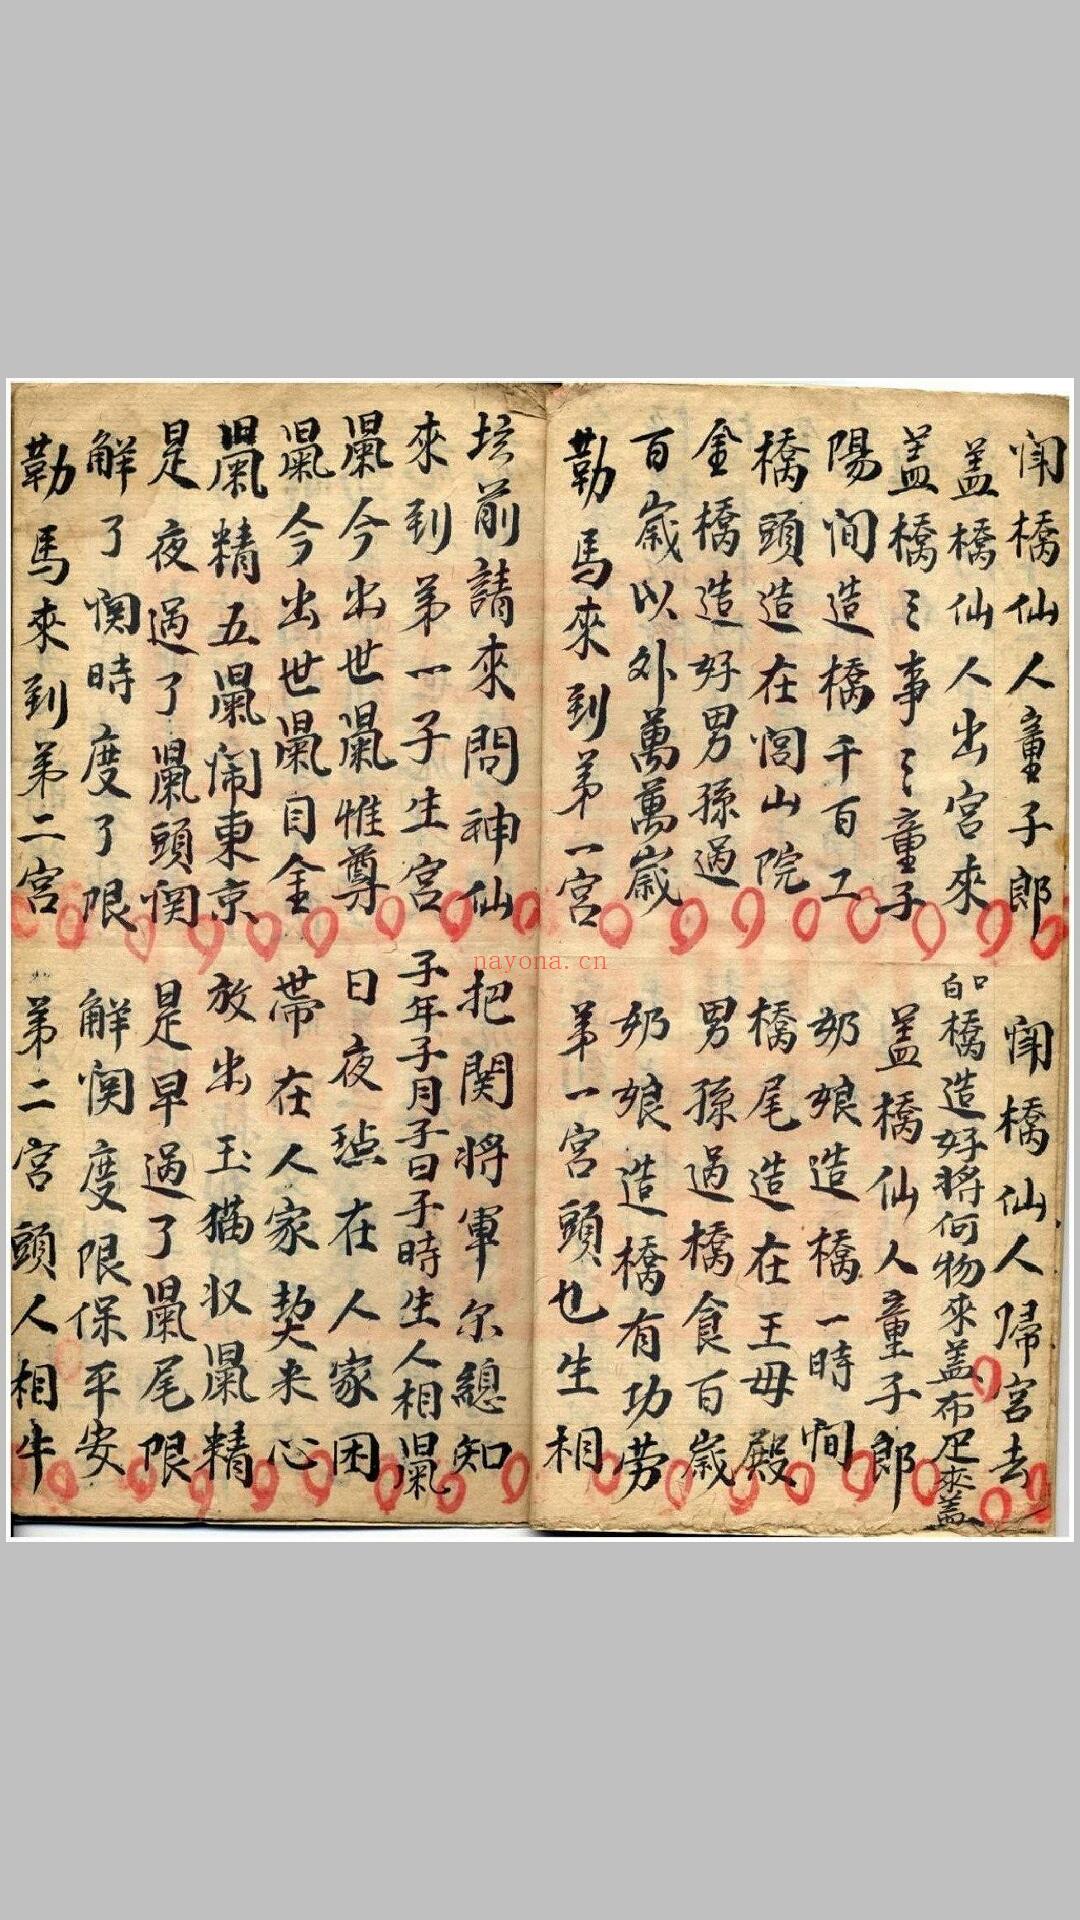 闹橋仙人童子郎　闹橋仙人歸宮去
盖橋仙人出宮來　白口橋造好將何物來盖布疋來盖
盖橋三事三童子　盖橋仙人童子郎
陽间造橋千百工　奶娘造橋一時间
橋頭造在闾山院　橋尾造在王母殿
金橋造好男孫過　男孫過橋食百歲
百歲以外萬萬歲　奶娘造橋有功劳
勒馬來到第一宮　第一宮頭也生相
坛前請來問神仙　把関将軍尔總知
來到第一子生宮　子年子月子日子時生人相鼠
鼠今出世鼠惟尊　日夜在人家困
鼠今出世鼠目金　带在人家契米心
鼠精五鼠闹東京　放出玉猫収鼠精
是夜過了鼠頭関　是早過了鼠尾限
解了関時度了限　解関度限保平安
勒馬來到第二宮　第二宮頭人相牛
nayona.cn